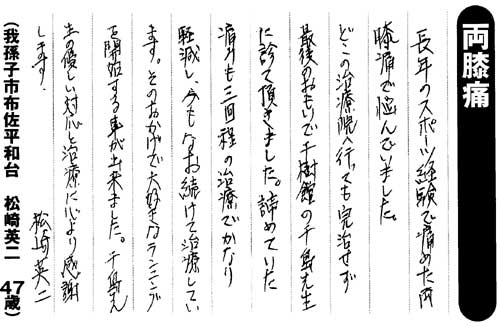 両膝痛
長年のスポーツ経験で痛めた両
膝痛で悩んでいました。
どこの治療院へ行っても完治せず
最後のおもいで千樹館の千島先生
に診て頂きました。諦めていた
痛みも三回程の治療でかなり
軽減し、今もなお続けて治療してい
ます。そのおかげで大好きなランニング
を開始する事が出来ました。千島先
生の優しい対応と治療に心より感謝
します。
松崎英二
(我孫子市布佐平和台 松崎英二 47歳)